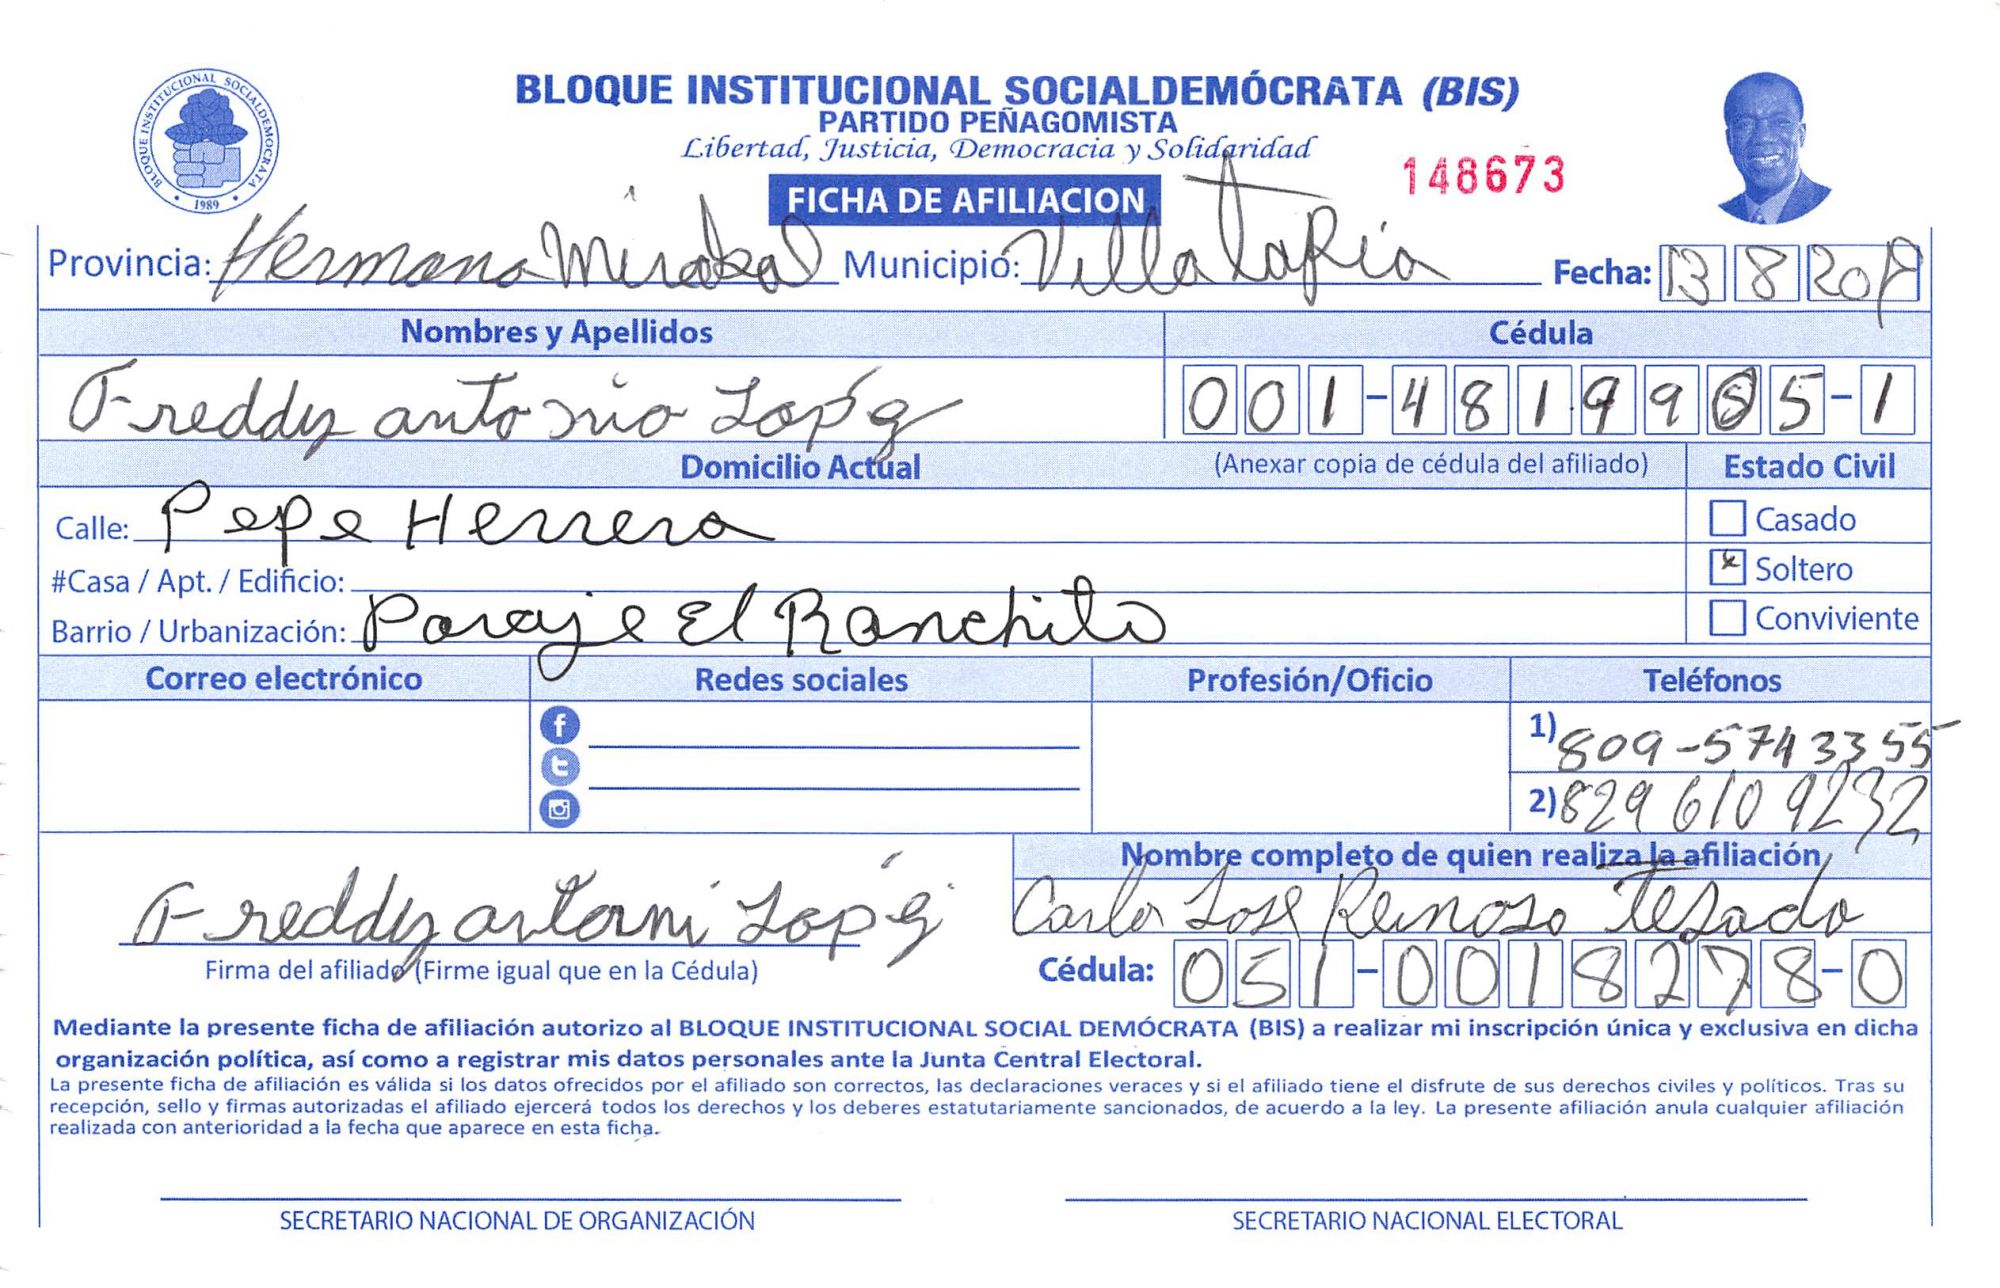 BLOQUE INSTITUCIONAL SOCIALDEMOCRATA
1989
BLOQUE INSTITUCIONAL SOCIALDEMÓCRATA (BIS)
PARTIDO PEÑAGOMISTA
Libertad, Justicia, Democracia y Solidaridad
148673
FICHA DE AFILIACION
Provincia: Hermana Mirabal Municipio: Villa Tapia Fecha: 13 8 2019
Nombres y Apellidos Cédula
Freddy antonio Lopéz 001-4819965-1
Domicilio Actual (Anexar copia de cédula del afiliado) Estado Civil
Calle: Pepe Herrera
Casado
#Casa / Apt. / Edificio:
x Soltero
Barrio / Urbanización: Paraje El Ranchito
Conviviente
Correo electrónico Redes sociales Profesión/Oficio Teléfonos
1) 809-5743355
2) 829 610 9232
Nombre completo de quien realiza la afiliación
Freddy antoni Lopéz
Carlo Jose Reinoso
Firma del afiliado (Firme igual que en la Cédula)
Cédula: 051-0018278-0
Mediante la presente ficha de afiliación autorizo al BLOQUE INSTITUCIONAL SOCIAL DEMÓCRATA (BIS) a realizar mi inscripción única y exclusiva en dicha
organización política, así como a registrar mis datos personales ante la Junta Central Electoral.
La presente ficha de afiliación es válida si los datos ofrecidos por el afiliado son correctos, las declaraciones veraces y si el afiliado tiene el disfrute de sus derechos civiles y políticos. Tras su
recepción, sello y firmas autorizadas el afiliado ejercerá todos los derechos y los deberes estatutariamente sancionados, de acuerdo a la ley. La presente afiliación anula cualquier afiliación
realizada con anterioridad a la fecha que aparece en esta ficha.
SECRETARIO NACIONAL DE ORGANIZACIÓN SECRETARIO NACIONAL ELECTORAL